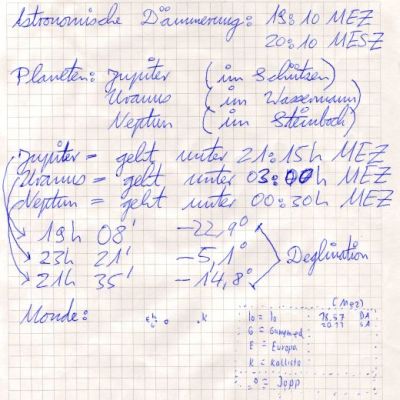 Astronomische Dämmerung: 19:10 MEZ
20:10 MESZ
Planeten: Jupiter (im Schützen)
Uranus (im Wassermann)
Neptun (im Steinbock)
Jupiter = geht unter 21:15h MEZ
Uranus = geht unter 03:00h MEZ
Neptun = geht unter 00:30h MEZ
19h 08' -22,9°
23h 21' -5,1°
21h 35' -14,8°
Deglination
Monde:
K
(MEZ)
Io = Io 18.57 DA
G = Ganymed
E = Europa
K = Kallisto
= Jupp